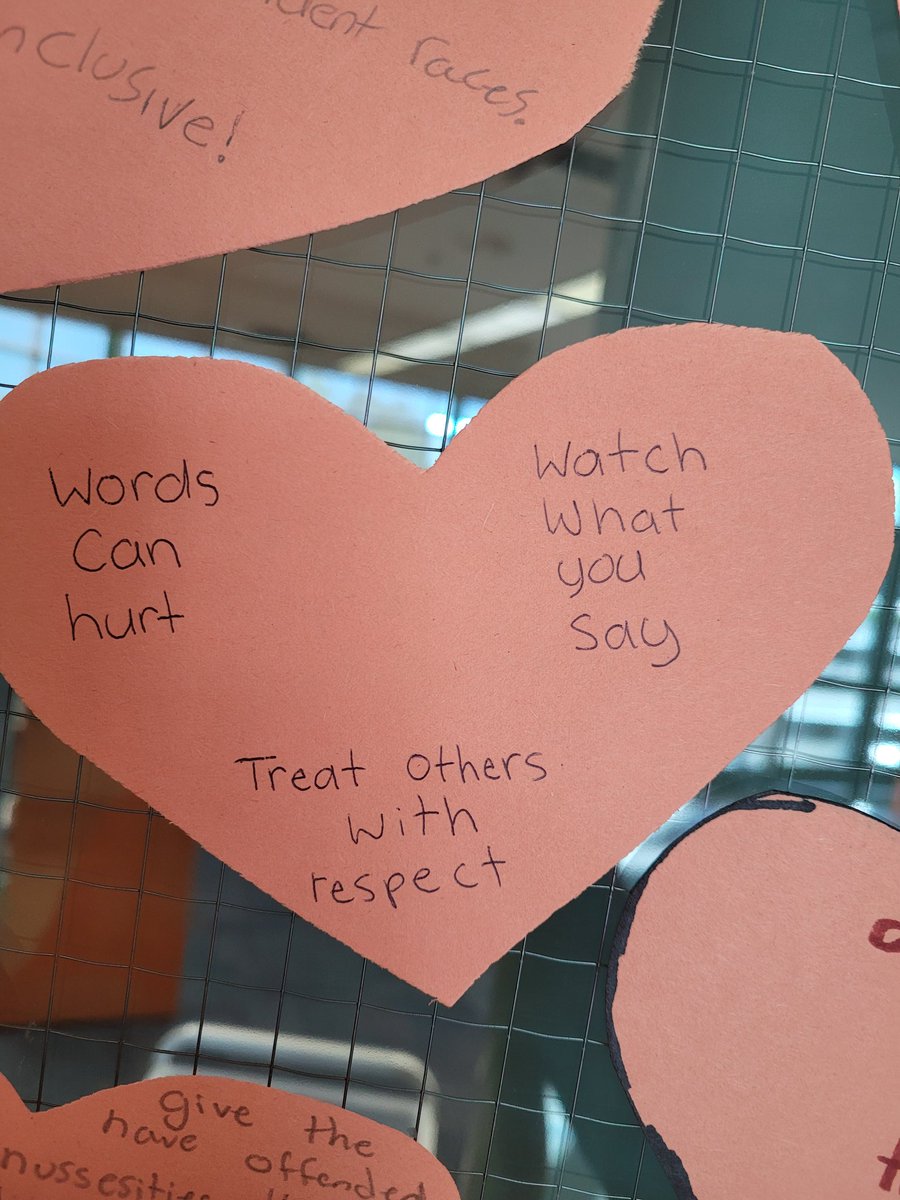 races.
nclusive!
Words
Can
hurt
Watch
What
you
Say
Treat Others
With
respect
give the
have offended